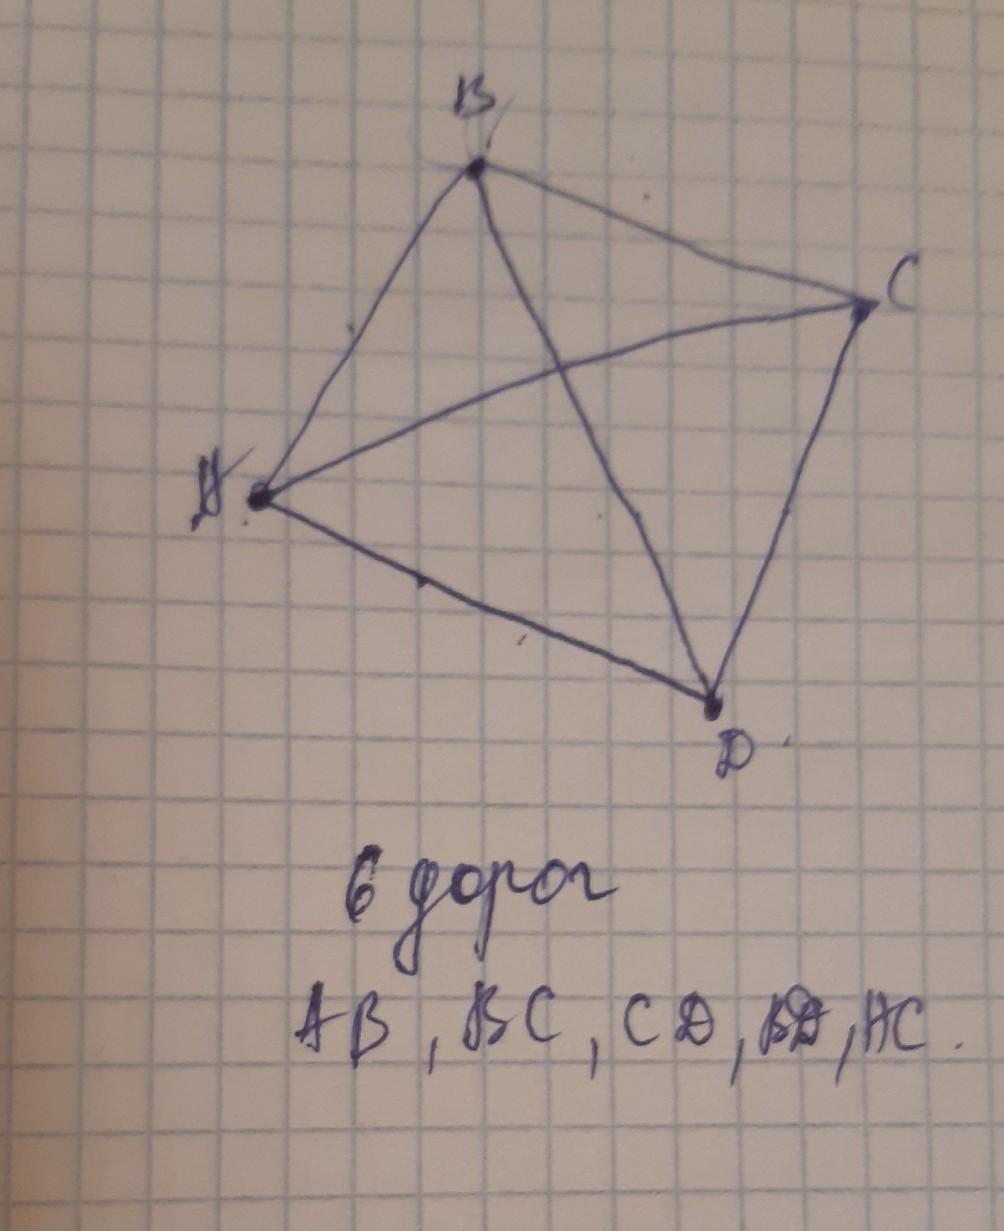 B
C
A
D
6 дорог
AB, BC, CD, BD, AC.